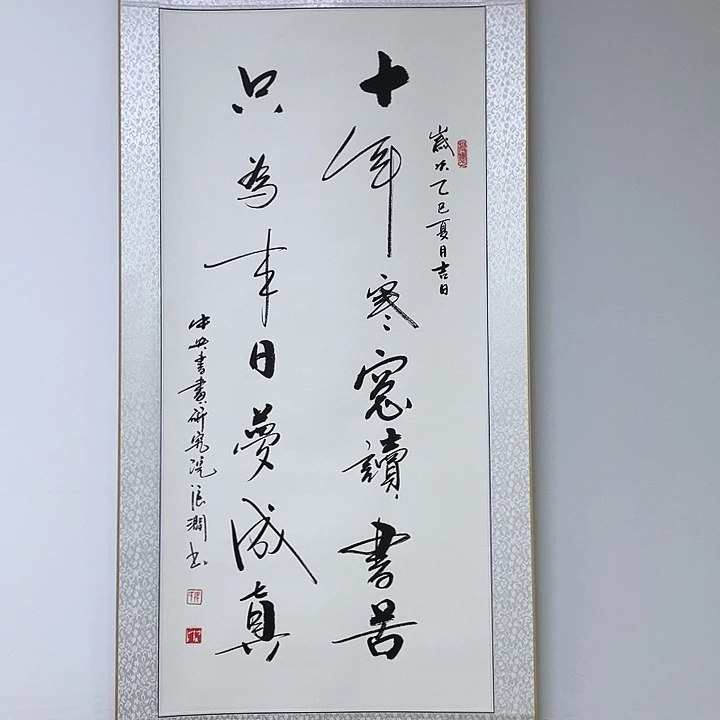 歲次乙巳夏月吉日
十年寒窓讀書苦
只為来日夢成真
中央書畫研究院浪书